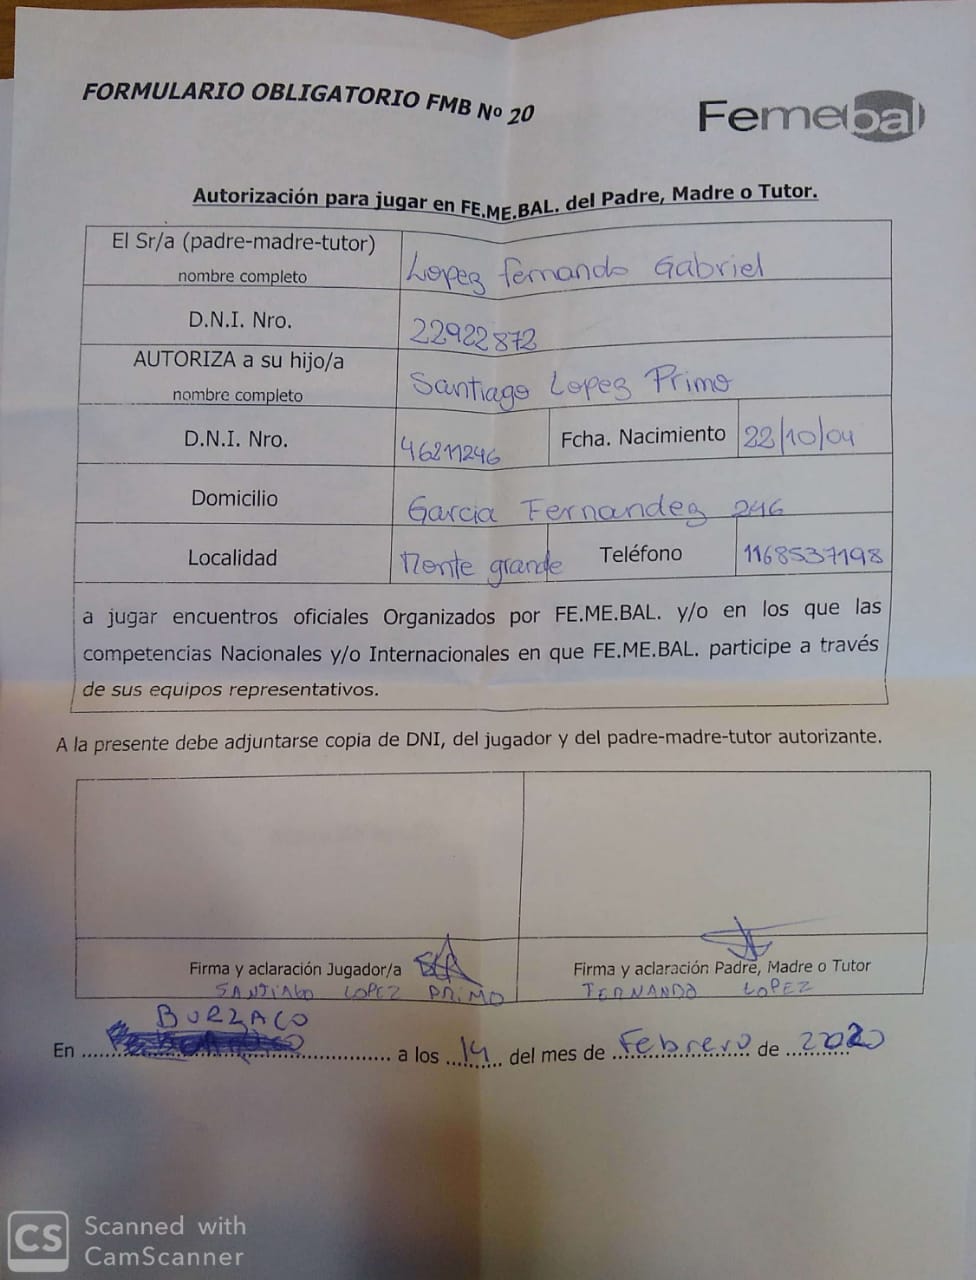 FORMULARIO OBLIGATORIO FMB Nº 20
Femebal
Autorización para jugar en FE.ME.BAL. del Padre, Madre o Tutor.
El Sr/a (padre-madre-tutor)
nombre completo
Lopez Fernando Gabriel
D.N.I. Nro.
22922872
AUTORIZA a su hijo/a
nombre completo
Santiago Lopez Primo
D.N.I. Nro.
46211246
Fcha. Nacimiento
22/10/04
Domicilio
Garcia Fernandez 246
Localidad
Monte grande
Teléfono
1168537198
a jugar encuentros oficiales Organizados por FE.ME.BAL. y/o en los que las
competencias Nacionales y/o Internacionales en que FE.ME.BAL. participe a través
de sus equipos representativos.
A la presente debe adjuntarse copia de DNI, del jugador y del padre-madre-tutor autorizante.
Firma y aclaración Jugador/a
SANTIAGO LOPEZ PRIMO
Firma y aclaración Padre, Madre o Tutor
FERNANDO LOPEZ
BURZACO
En .......... a los 14 del mes de Febrero de 2020
CS Scanned with
CamScanner